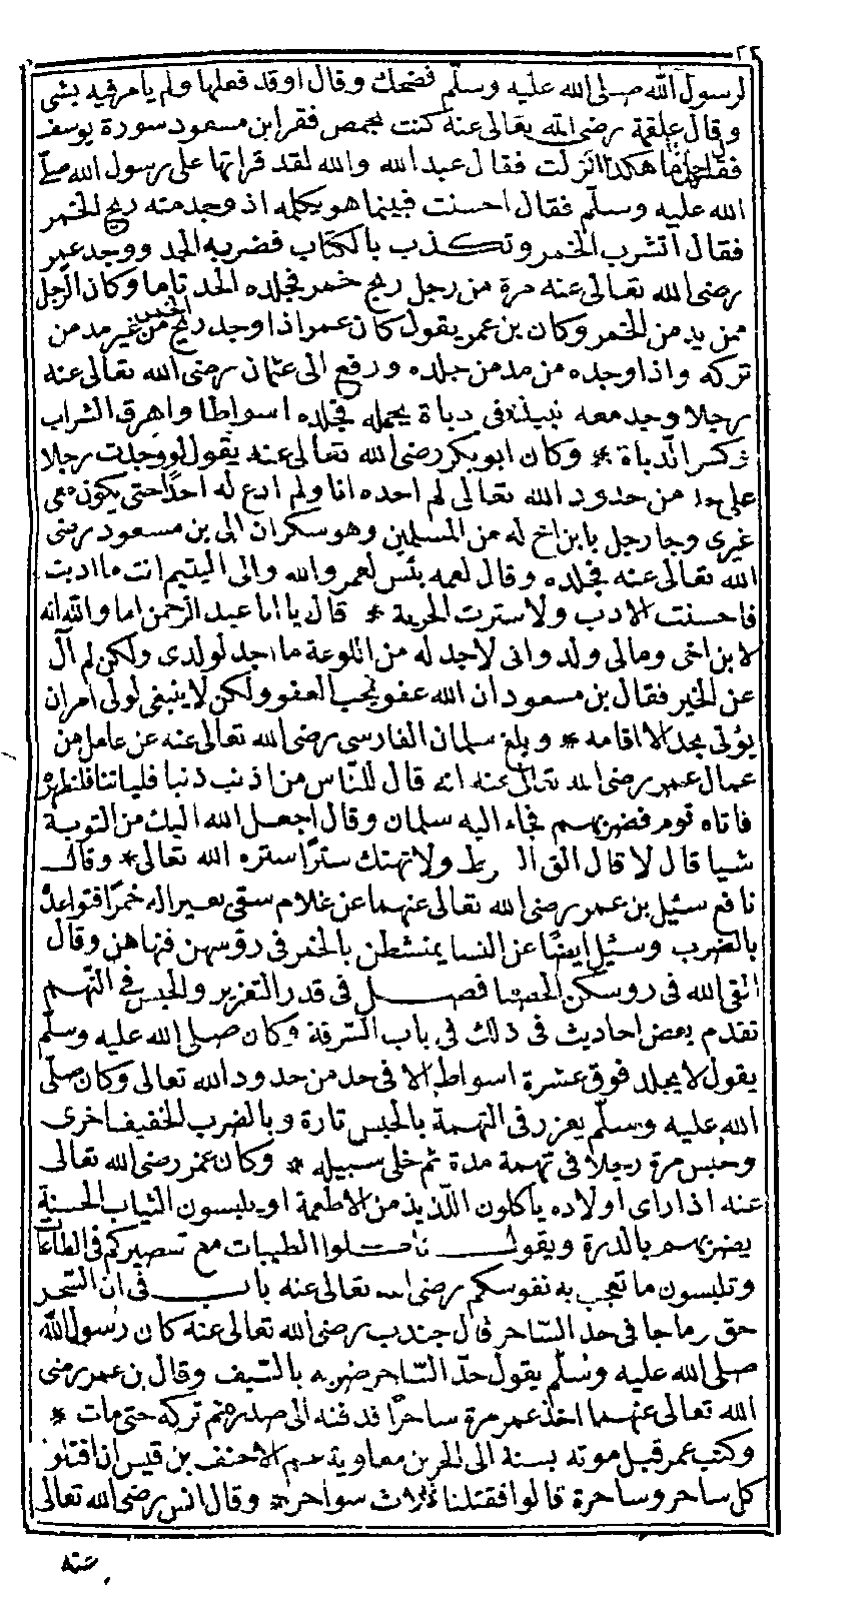 ٢٢
لرسول الله صلى الله عليه وسلم فضحك وقال او قد فعلها ولم يامر فيه بشى
وقال علقمة رضى الله تعالى عنه كنت بحمص فقرا بن مسعود سورة يوسف
فقال رجل ما هكذا انزلت فقال عبد الله والله لقد قراتها على رسول الله صلى
الله عليه وسلم فقال احسنت فبينما هو يكلمه اذ وجد منه ريح الخمر
فقال اتشرب الخمر وتكذب بالكتاب فضربه الحد ووجد عمر
رضى الله تعالى عنه مرة من رجل ريح خمر فجلده الحد تاما وكان الرجل
ممن يدمن الخمر وكان بن عمر يقول كان عمر اذا وجد ريح الخمر من غير مدمن
تركه واذا وجده من مدمن جلده ورفع الى عثمان رضى الله تعالى عنه
رجلا وجد معه نبيذ فى دباة يحمله فجلده اسواطا واهرق الشراب
وكسر الدباة * وكان ابو بكر رضى الله تعالى عنه يقول لو وجدت رجلا
على حد من حدود الله تعالى لم احده انا ولم ادع له احدا حتى يكون معى
غيرى وجا رجل بابن اخ له من المسلمين وهو سكران الى بن مسعود رضى
الله تعالى عنه فجلده وقال لعمه بئس لعمر والله والى اليتيم انت ما ادبت
فاحسنت الادب ولا سترت الخربة * قال يا ابا عبد الرحمن اما والله انه
لابن اخى ومالى ولد وانى لاجد له من اللوعة ما اجد لولدى ولكن لم آل
عن الخير فقال بن مسعود ان الله عفو يحب العفو ولكن لا ينبغى لولى امر ان
يؤتى بحد الا اقامه * وبلغ سلمان الفارسى رضى الله تعالى عنه عن عامل من
عمال عمر رضى الله تعالى عنه انه قال للناس من اذنب ذنبا فلياتنا فلنطهره
فاتاه قوم فضربهم فجاء اليه سلمان وقال اجعل الله اليك من التوبة
شيا قال لا قال الق السوط ولا تهتك سترا ستره الله تعالى * وقال
نافع سئيل بن عمر رضى الله تعالى عنهما عن غلام سقى بعيرا له خمرا فتواعده
بالضرب وسئيل ايضا عن النسا يمتشطن بالخمر فى رؤسهن فنهاهن وقال
القى الله فى روسكن الحصبا فصل فى قدر التعزير والحبس فى التهم
تقدم بعض احاديث فى ذلك فى باب السرقة وكان صلى الله عليه وسلم
يقول لا يجلد فوق عشرة اسواط الا فى حد من حدود الله تعالى وكان صلى
الله عليه وسلم يعزر فى التهمة بالحبس تارة وبالضرب الخفيف اخرى
وحبس مرة رجلا فى تهمة مدة ثم خلى سبيله * وكان عمر رضى الله تعالى
عنه اذا راى اولاده ياكلون اللذيذ من الاطعمة او يلبسون الثياب الحسنة
يضربهم بالدرة ويقول تاكلوا الطيبات مع تقصيركم فى الطاعات
وتلبسون ما تعجب به نفوسكم رضى الله تعالى عنه باب فى ان السحر
حق وما جا فى حد الساحر قال جندب رضى الله تعالى عنه كان رسول الله
صلى الله عليه وسلم يقول حد الساحر ضربه بالسيف وقال بن عمر رضى
الله تعالى عنهما اخذ عمر مرة ساحرا فدفنه الى صدره ثم تركه حتى مات *
وكتب عمر قبل موته بسنة الى الحر بن معاوية عم الاحنف بن قيس ان اقتلوا
كل ساحر وساحرة قالوا فقتلنا ثلاث سواحر * وقال انس رضى الله تعالى
عنه